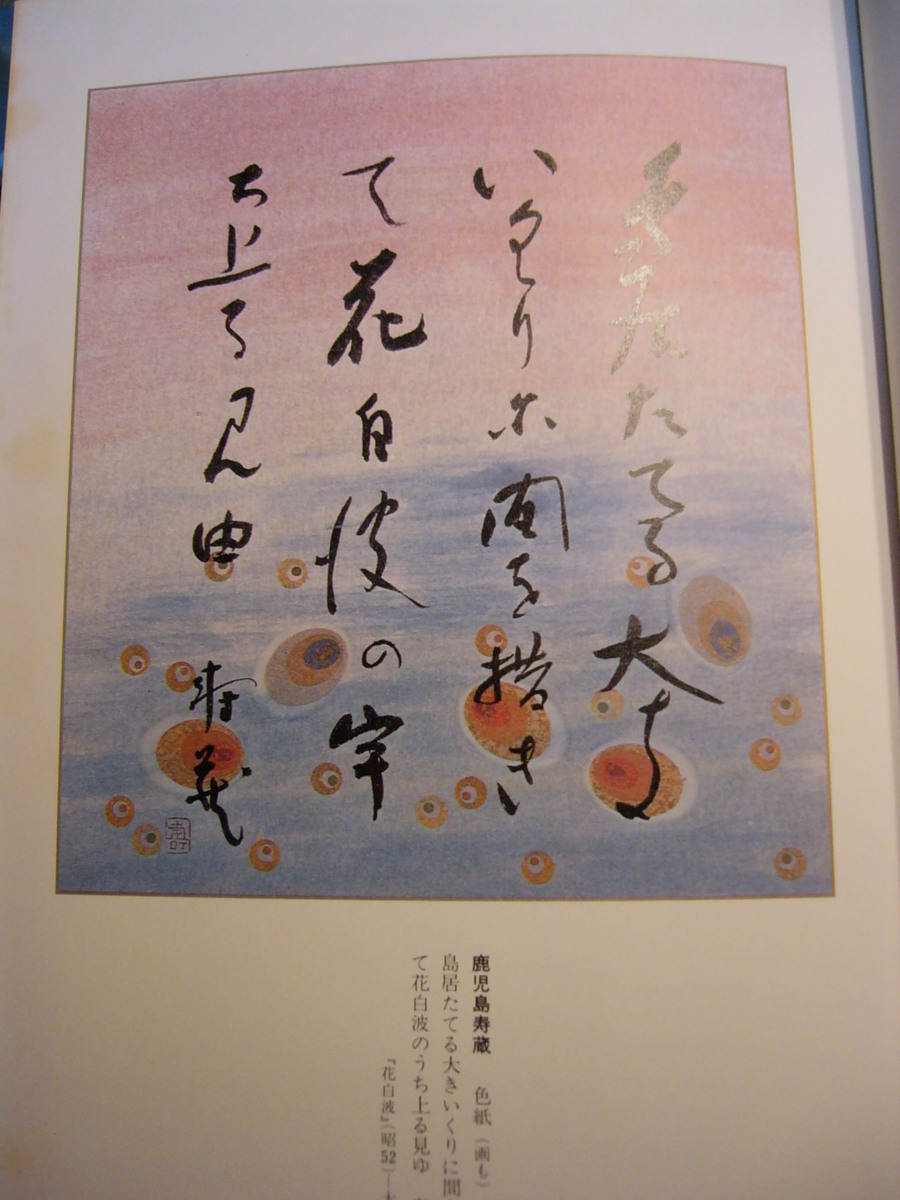 鳥居たてる大き
いくりに間を措き
て花白波の宇
ち上る見由
寿蔵
鹿児島寿蔵 色紙(画も)
島居たてる大きいくりに間
て花白波のうち上る見ゆ
『花白波』(昭52)―